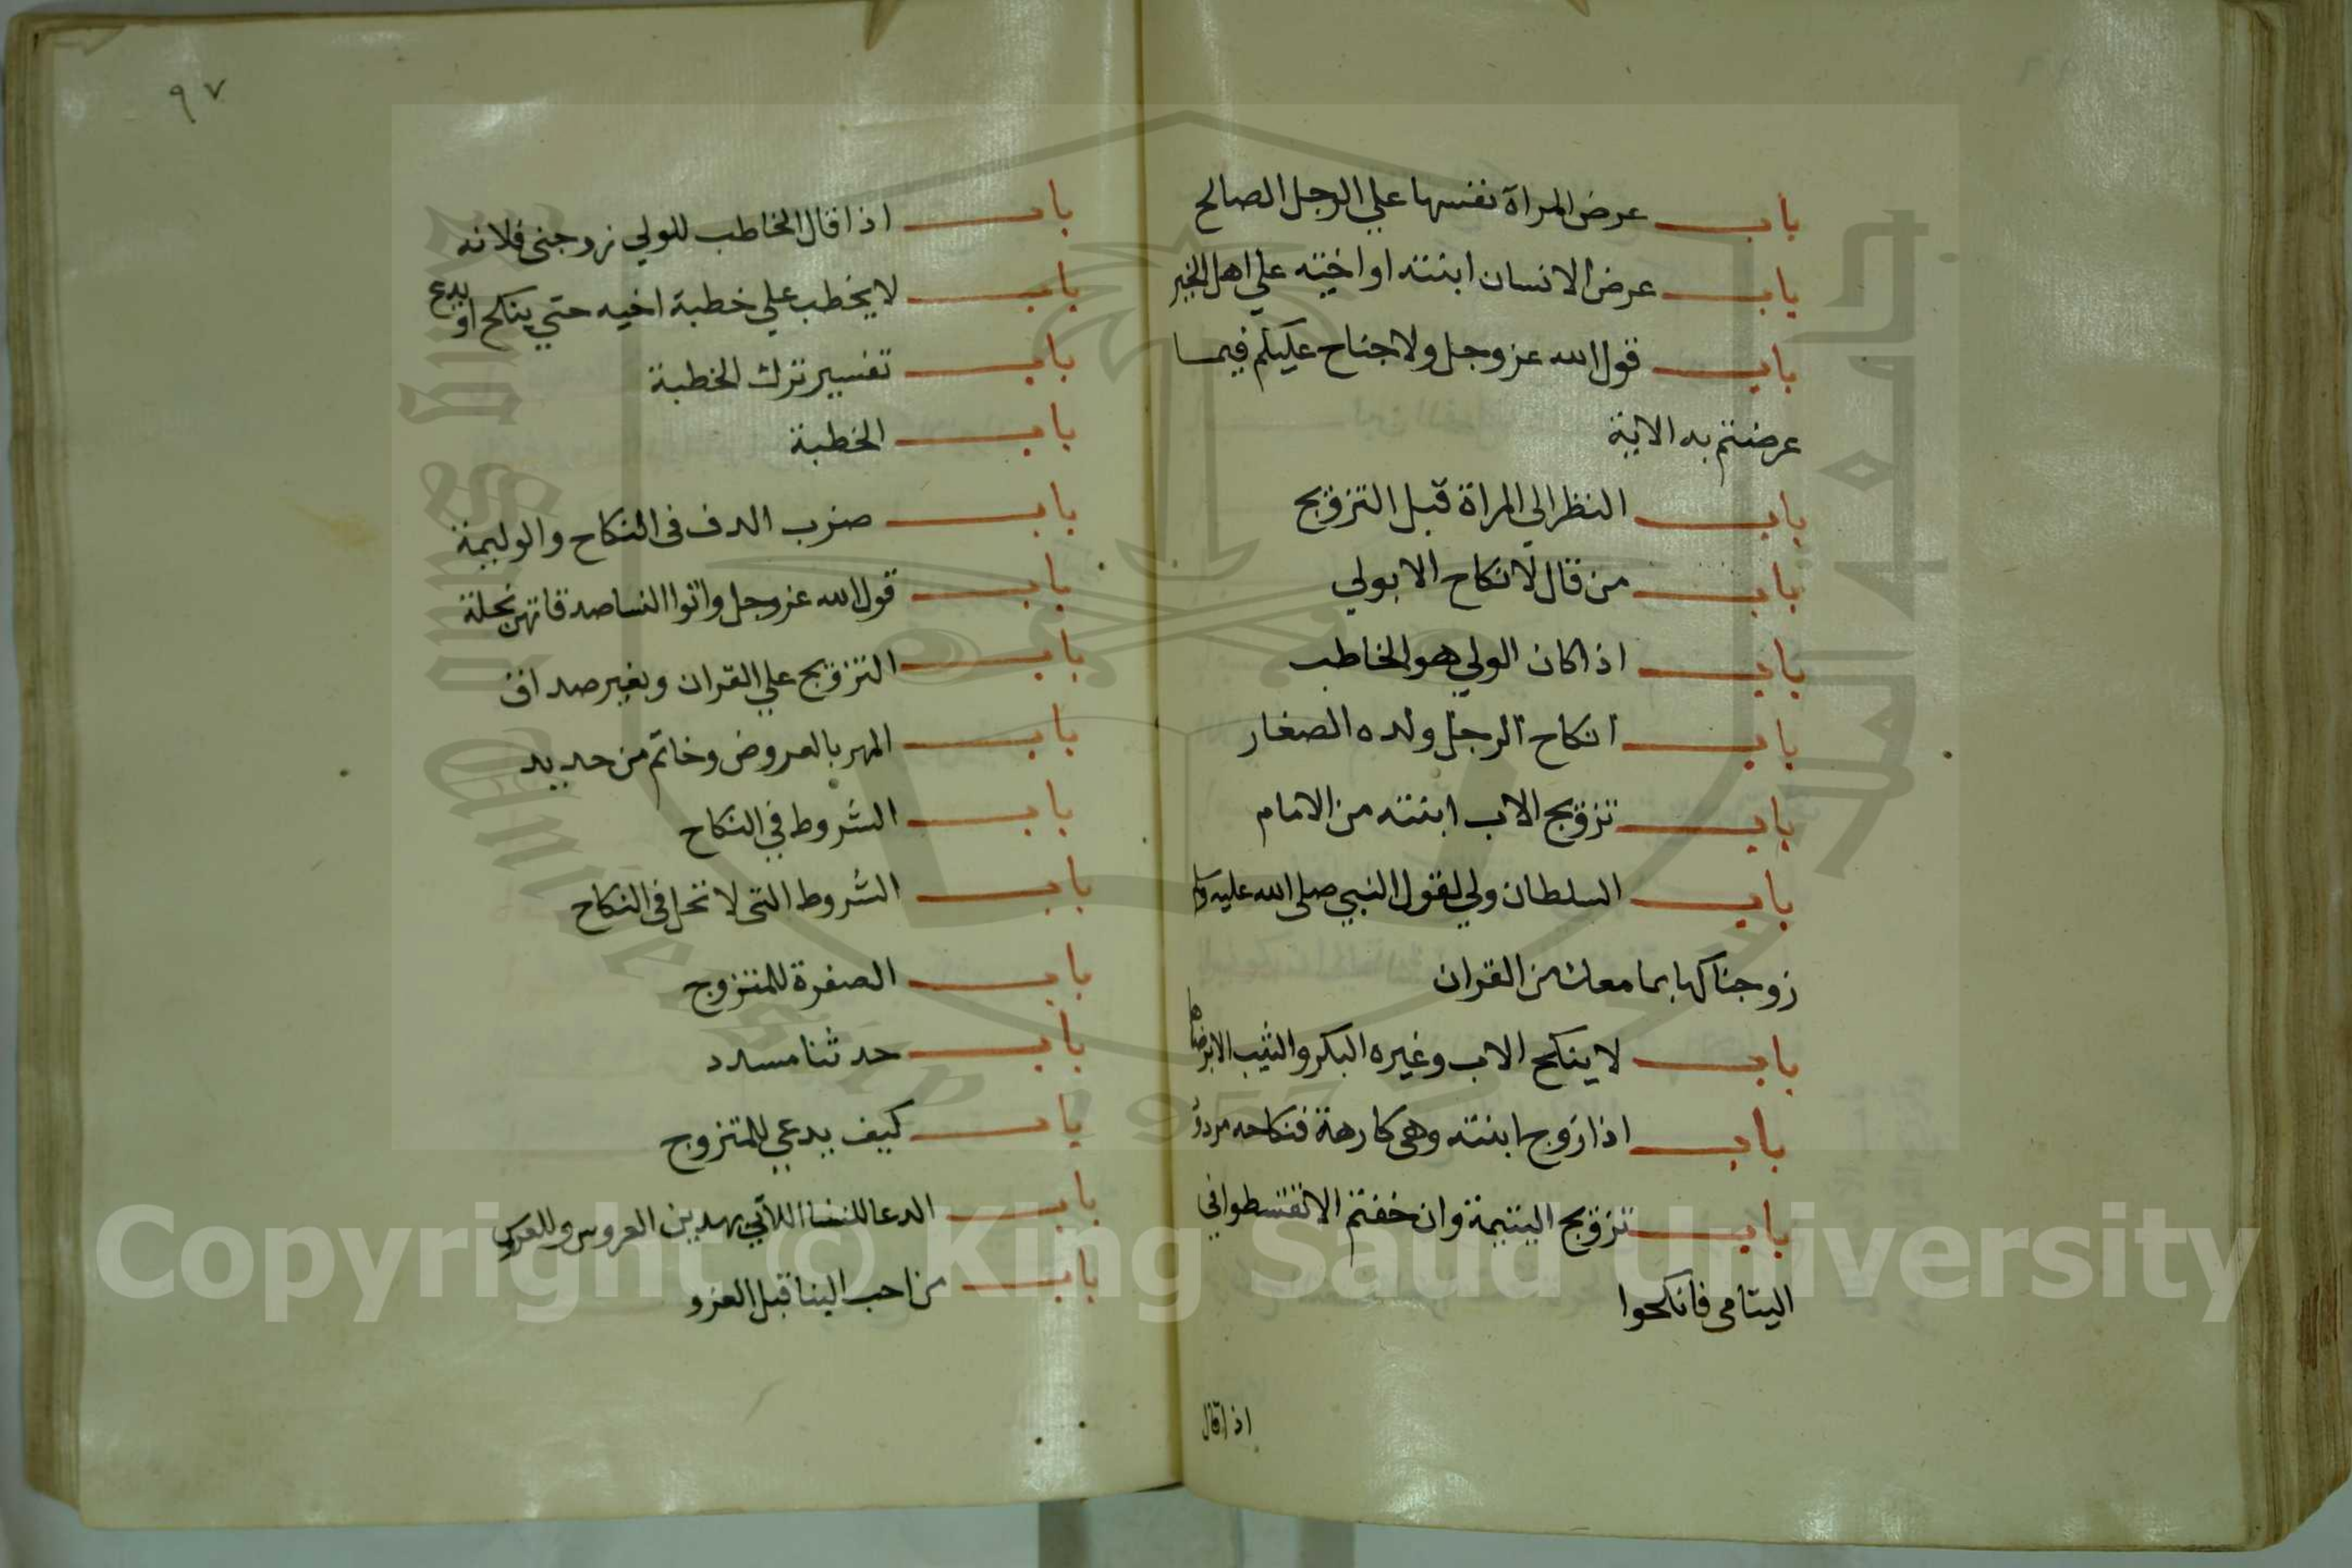 باب عرض المرآة نفسها علي الرجل الصالح
باب عرض الانسان ابنته او اخيته علي اهل الخير
باب قول الله عز وجل ولا جناح عليكم فيما
عرضتم به الاية
باب النظر الي المراة قبل التزويج
باب من قال لا نكاح الا بولي
باب اذا كان الولي هو الخاطب
باب انكاح الرجل ولده الصغار
باب تزويج الاب ابنته من الامام
باب السلطان ولي لقول النبي صلى الله عليه
زوجناكها بما معك من القران
باب لا ينكح الاب وغيره البكر والثيب الا برضاها
باب اذا زوج ابنته وهى كارهة فنكاحه مردود
باب تزويج اليتيمة وان خفتم الا تقسطوا في
اليتامى فانكحوا
اذا قال
٩٧
باب اذا قال الخاطب للولي زوجنى فلانه
باب لا يخطب علي خطبة اخيه حتي ينكح او يدع
باب تفسير ترك الخطبة
باب الخطبة
باب ضرب الدف فى النكاح والوليمة
باب قول الله عز وجل واتوا النسا صدقاتهن نحلة
باب التزويج علي القران وبغير صداق
باب المهر بالعروض وخاتم من حديد
باب الشروط في النكاح
باب الشروط التى لا تحل فى النكاح
باب الصفرة للمتزوج
باب حدثنا مسدد
باب كيف يدعي للمتزوج
باب الدعا للنسا اللاتي يهدين العروس وللعروس
باب من احب البنا قبل الغزو
King Saud University
1957
Copyright © King Saud University